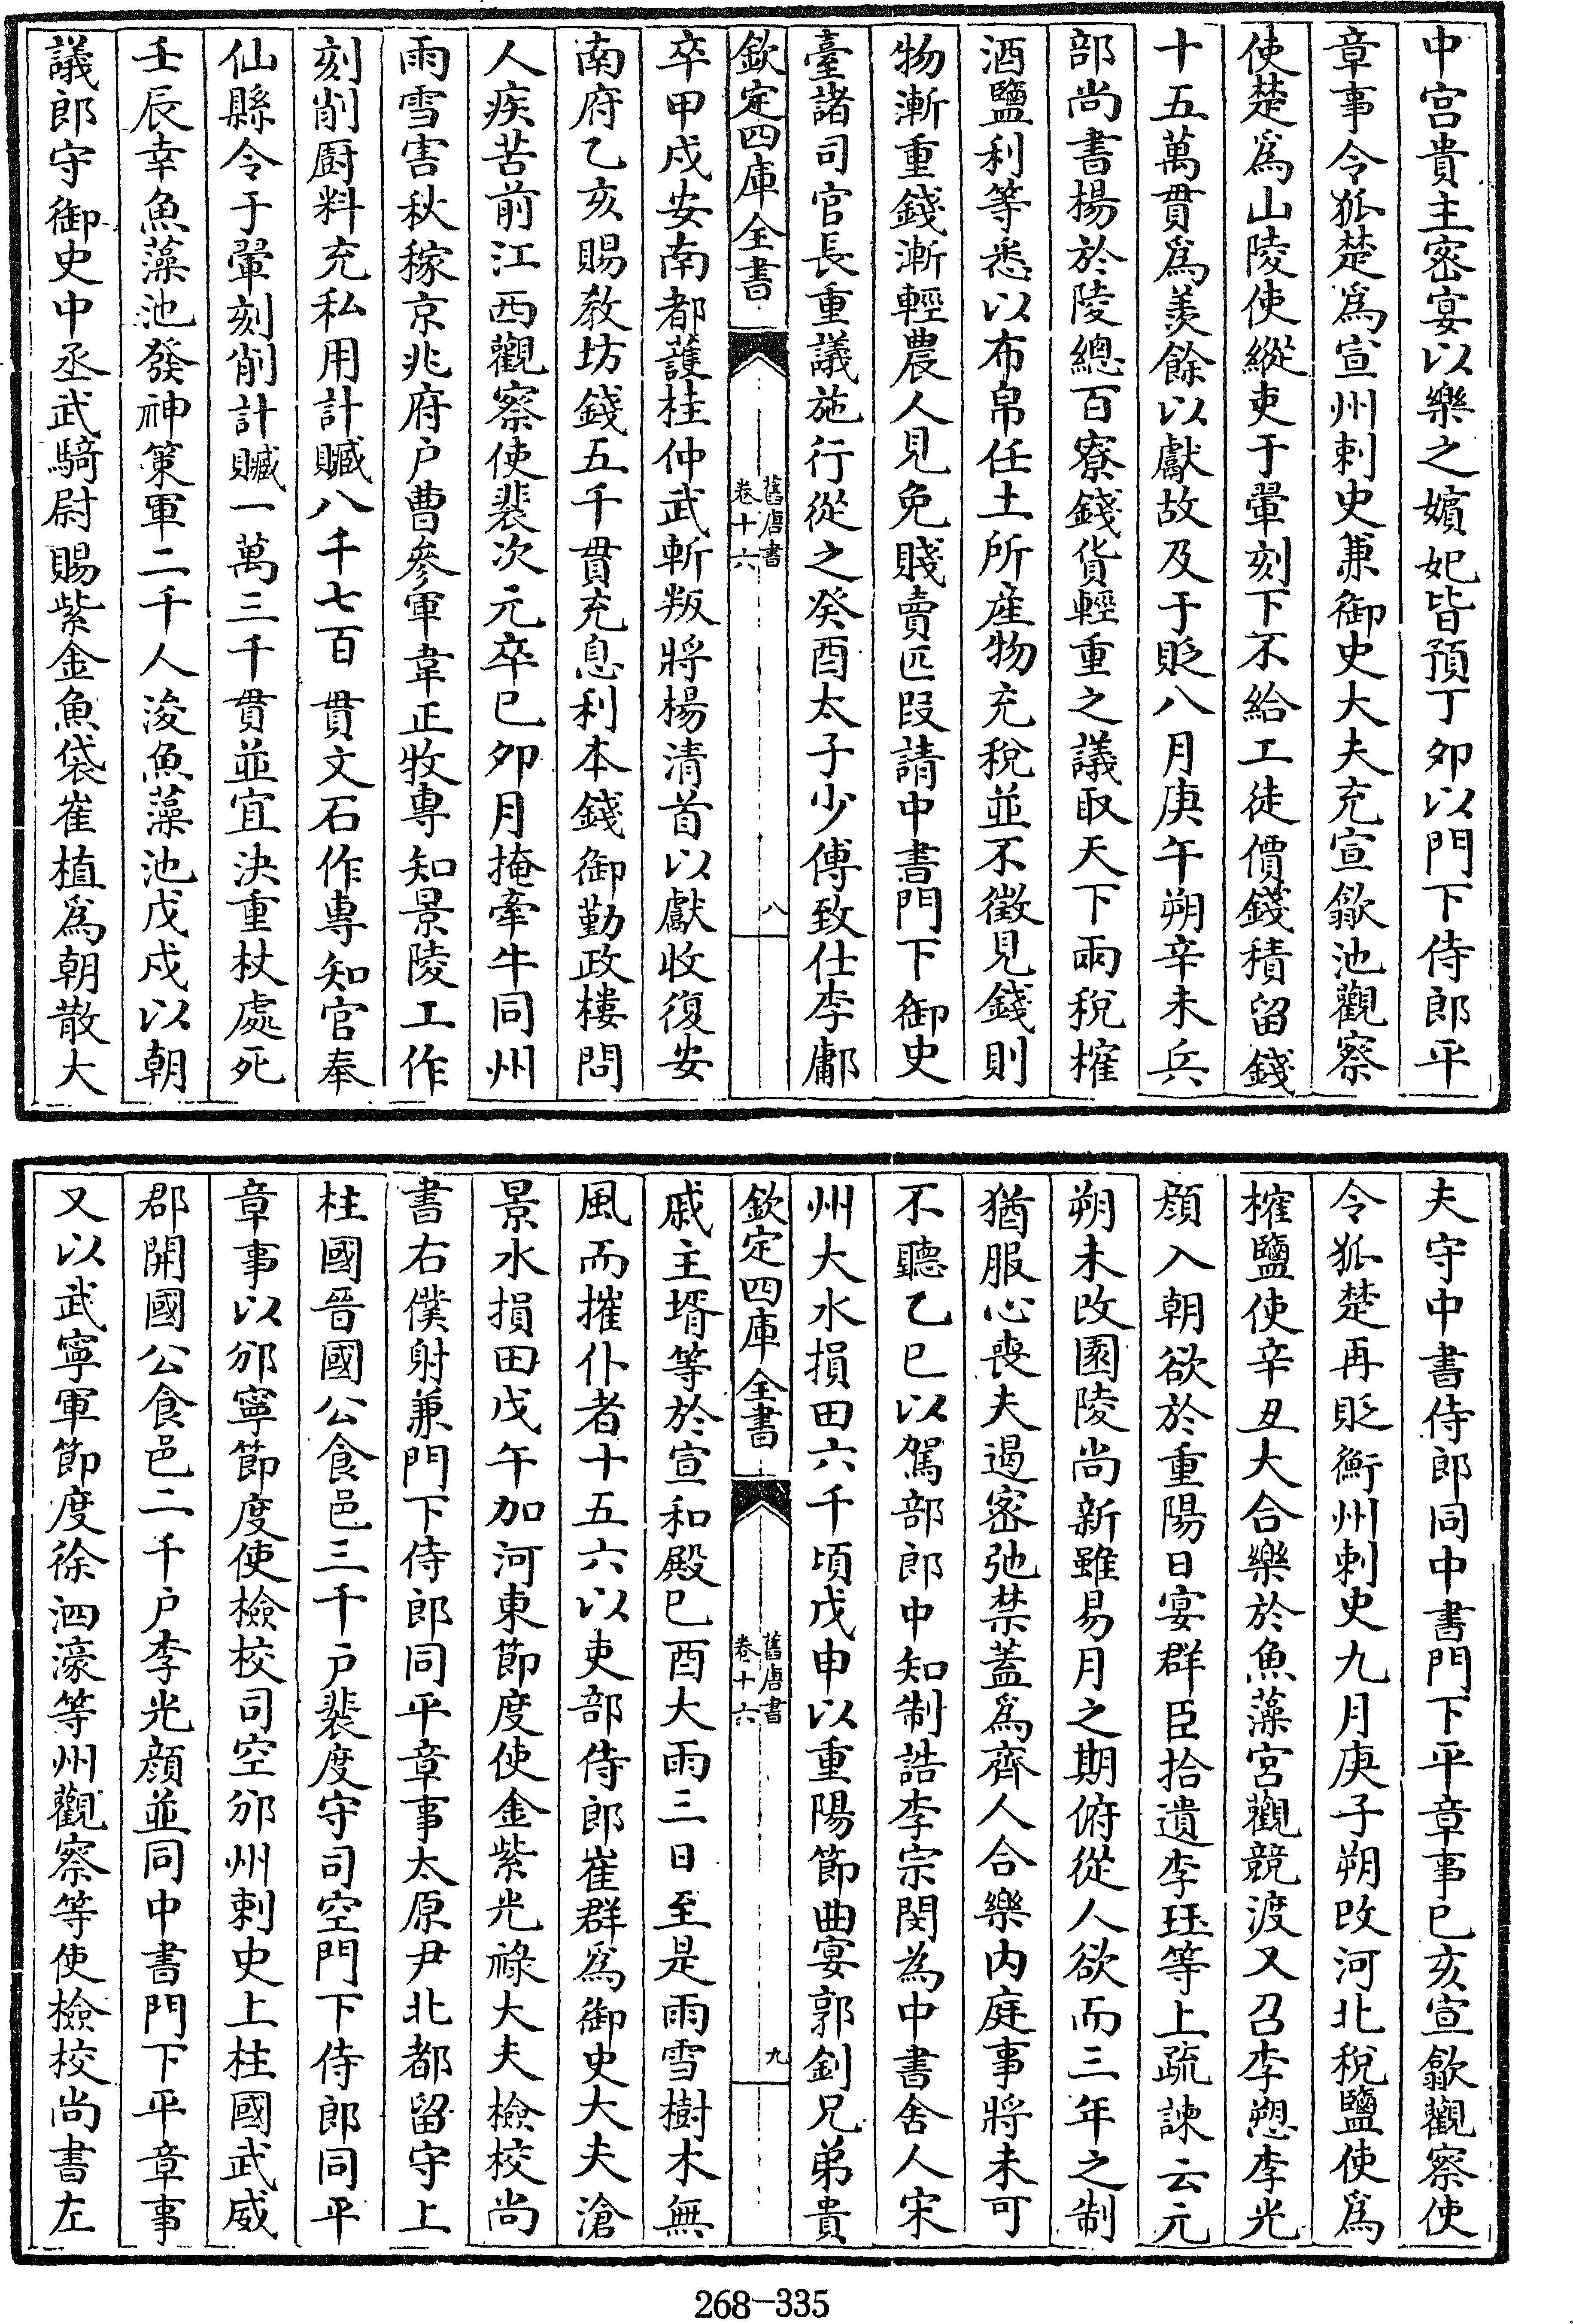 中宫貴主密宴以樂之嬪妃皆預丁夘以門下侍郎平
章事令狐楚爲宣州刺史兼御史大夫充宣歙池觀察
使楚爲山陵使縱吏于翬刻下不給工徒價錢積留錢
十五萬貫爲羨餘以獻故及于貶八月庚午朔辛未兵
部尚書楊於陵總百寮錢貨輕重之議取天下兩稅榷
酒鹽利等悉以布帛任土所産物充稅並不徵見錢則
物漸重錢漸輕農人見免賤賣匹段請中書門下御史
臺諸司官長重議施行從之癸酉太子少傅致仕李鄘
欽定四庫全書
舊唐書
卷十六
八
卒甲戍安南都護桂仲武斬叛將楊清首以獻收復安
南府乙亥賜教坊錢五千貫充息利本錢御勤政樓問
人疾苦前江西觀察使裴次元卒已夘月掩牽牛同州
雨雪害秋稼京兆府户曹參軍韋正牧專知景陵工作
刻削厨料充私用計贓八千七百貫文石作專知官奉
仙縣令于翬刻削計贓一萬三千貫並宜決重杖處死
壬辰幸魚藻池發神策軍二千人浚魚藻池戊戍以朝
議郎守御史中丞武騎尉賜紫金魚袋崔植爲朝散大
夫守中書侍郎同中書門下平章事已亥宣歙觀察使
令狐楚再貶衡州刺史九月庚子朔改河北稅鹽使爲
榷鹽使辛丑大合樂於魚藻宮觀競渡又召李愬李光
顔入朝欲於重陽日宴群臣拾遺李珏等上疏諫云元
朔未改園陵尚新雖易月之期俯從人欲而三年之制
猶服心喪夫遏密弛禁蓋爲齊人合樂内庭事將未可
不聽乙巳以駕部郎中知制誥李宗閔為中書舍人宋
州大水損田六千頃戊申以重陽節曲宴郭釗兄弟貴
欽定四庫全書
舊唐書
卷十六
九
戚主壻等於宣和殿已酉大雨三日至是雨雪樹木無
風而摧仆者十五六以吏部侍郎崔群爲御史大夫滄
景水損田戊午加河東節度使金紫光祿大夫檢校尚
書右僕射兼門下侍郎同平章事太原尹北都留守上
柱國晉國公食邑三千户裴度守司空門下侍郎同平
章事以邠寧節度使檢校司空邠州刺史上柱國武威
郡開國公食邑二千户李光顔並同中書門下平章事
又以武寧軍節度徐泗濠等州觀察等使檢校尚書左
268-335